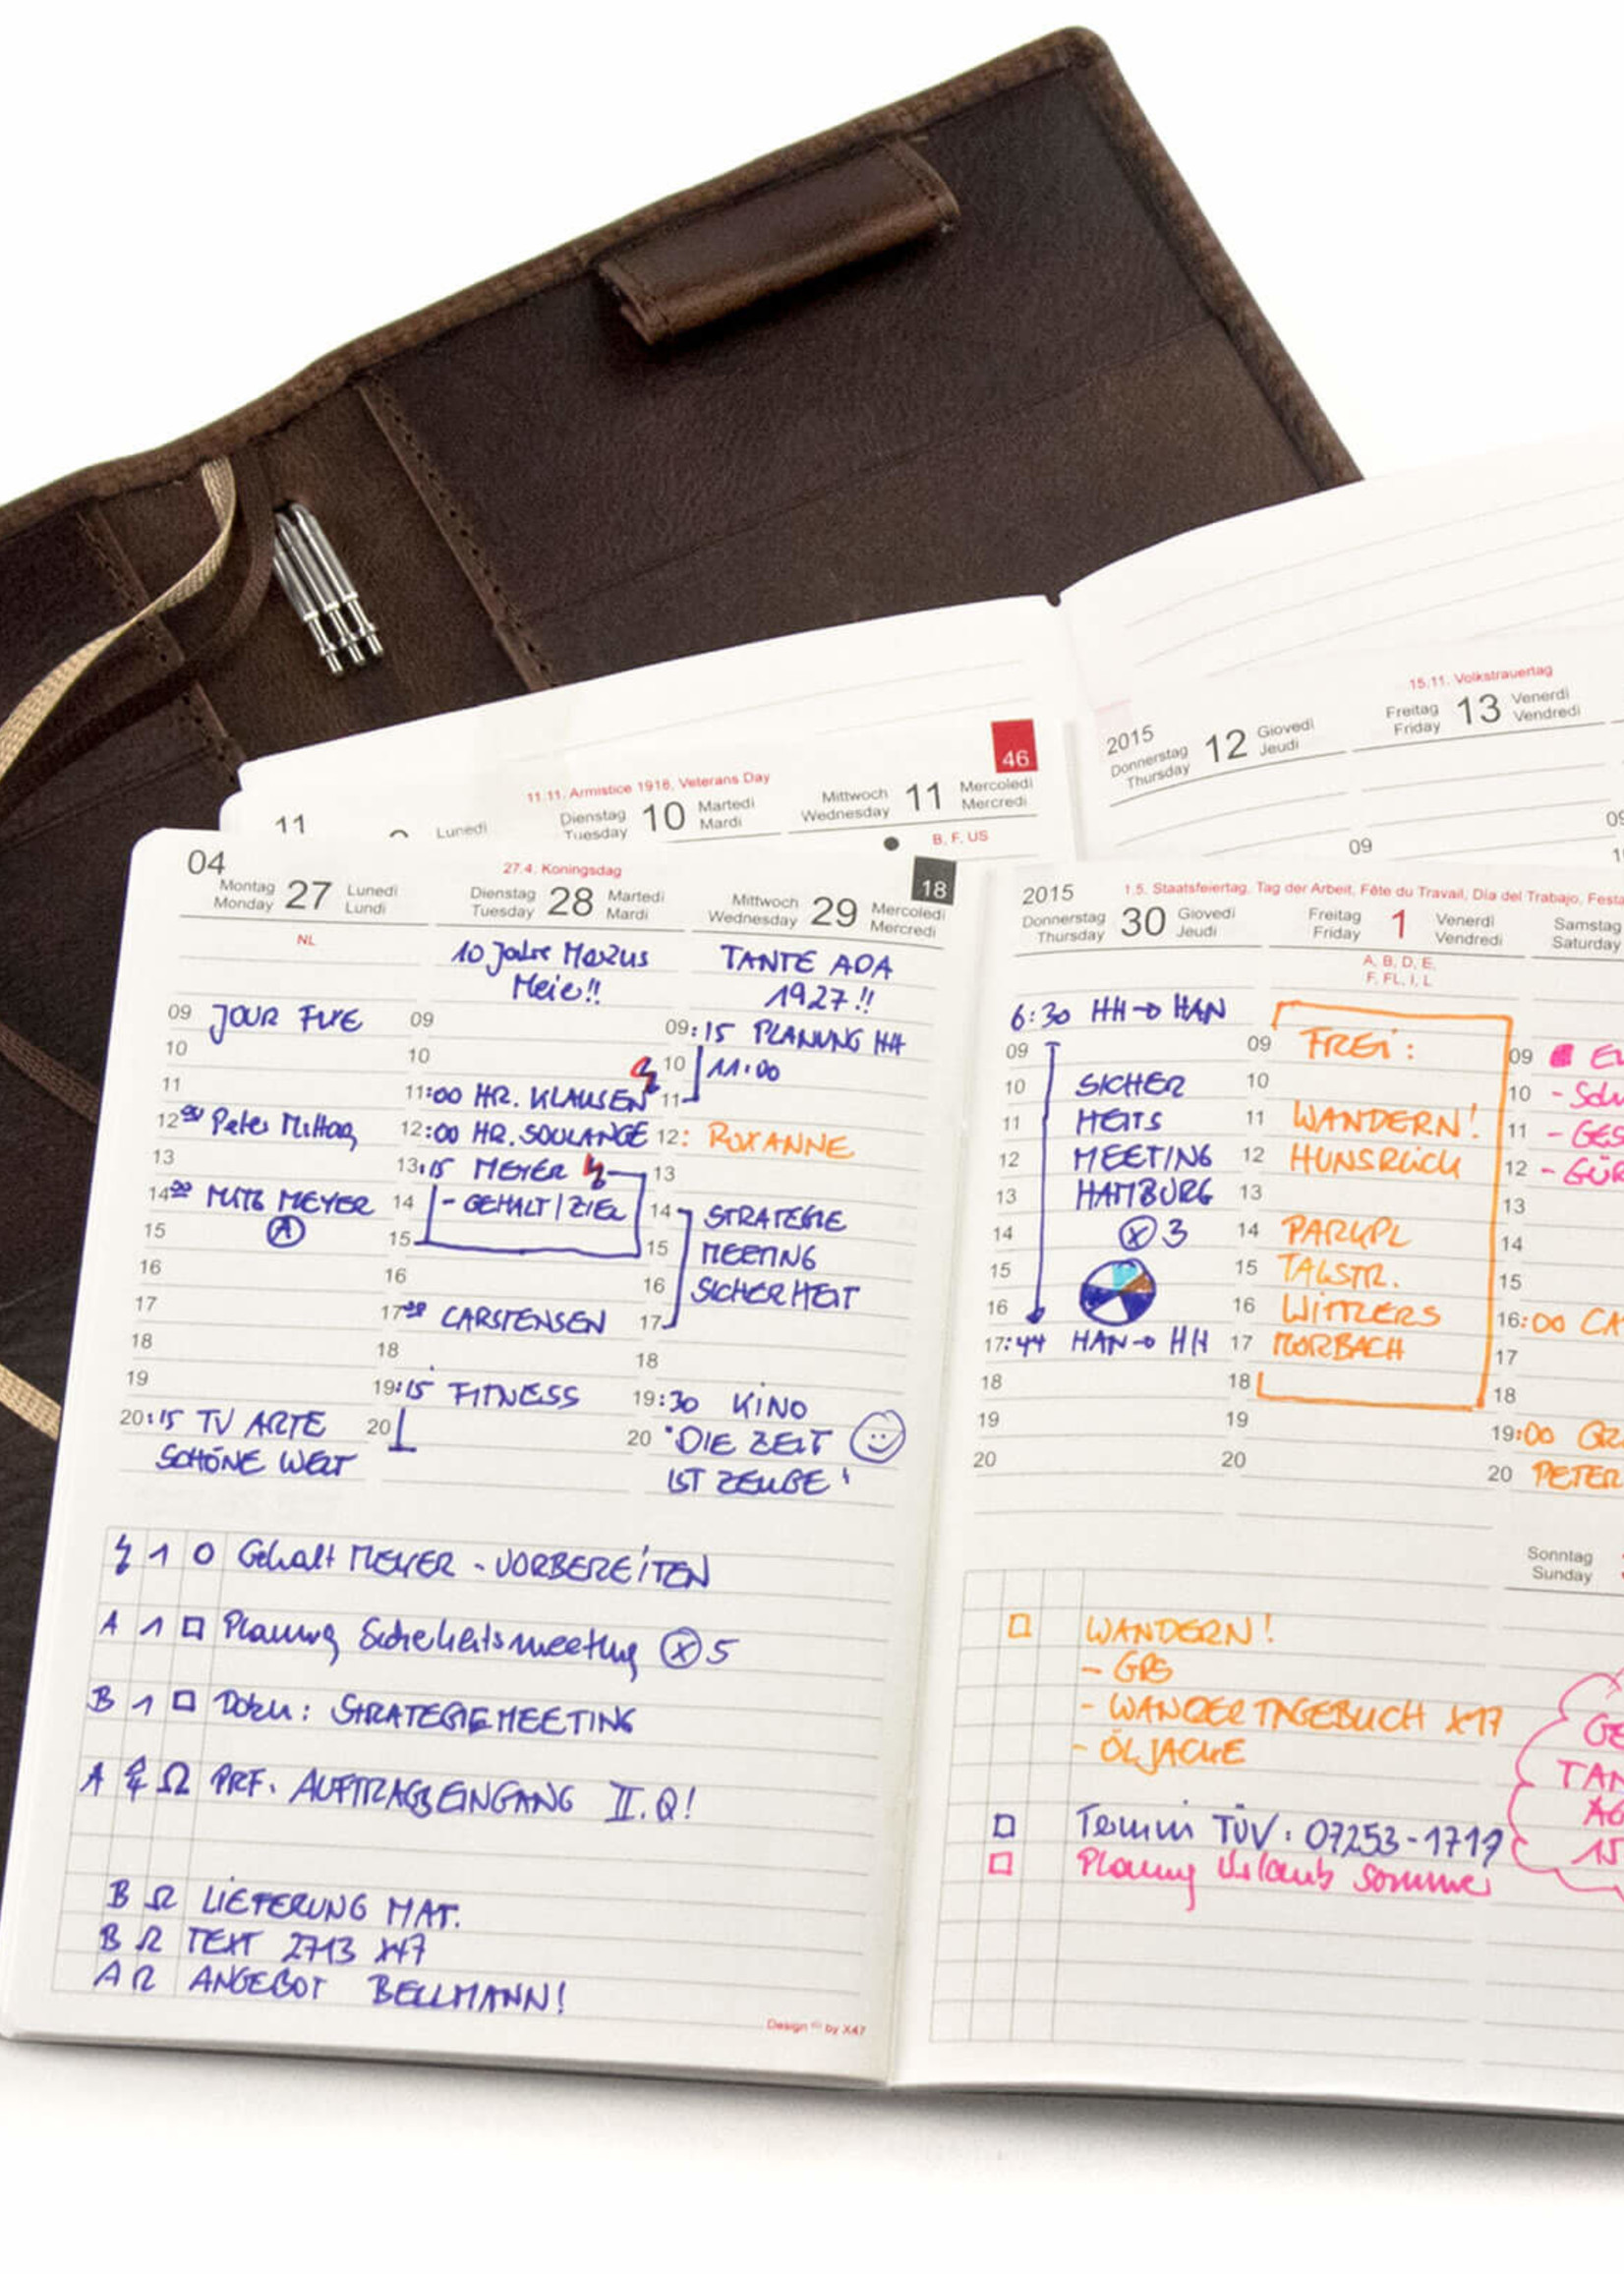 15.11. Volkstrauertag
2015
Donnerstag Thursday 12 Giovedì Jeudi
Freitag Friday 13 Venerdì Vendredi
09
09
46
11.11. Armistice 1918, Veterans Day
11
Lunedì
Dienstag Tuesday 10 Martedì Mardi
Mittwoch Wednesday 11 Mercoledì Mercredi
B, F, US
04
27.4. Koningsdag
18
Montag Monday 27 Lunedì Lundi
NL
09 JOUR FIXE
10
11
12:00 Peter Mittag
13
14:00 MITG MEYER
A
15
16
17
18
19
20:15 TV ARTE
SCHÖNE WELT
Dienstag Tuesday 28 Martedì Mardi
10 Jahre Markus
Meie!!
09
10
11:00 HR. KLAUSEN
12:00 HR. SOULANGE
13:15 MEYER
14 - GEHALT/ZIEL
15
16
17:30 CARSTENSEN
18
19:15 FITNESS
20
Mittwoch Wednesday 29 Mercoledì Mercredi
TANTE ADA
1927!!
09:15 PLANUNG HH
10 11:00
11
12: ROXANNE
13
14 STRATEGIE
15 MEETING
16 SICHERHEIT
17
18
19:30 KINO
20 "DIE ZEIT
IST ZEUGE"
Gehalt MEYER - VORBEREITEN
A 1 Planung Sicherheitsmeeting X 5
B 1 Doku: STRATEGIEMEETING
A Ω PRF. AUFTRAGSEINGANG II. Q!
B Ω LIEFERUNG MAT.
B Ω TEXT 2713 X47
A Ω ANGEBOT BELLMANN!
Design by X47
2015
1.5. Staatsfeiertag, Tag der Arbeit, Fête du Travail, Dia del Trabajo, Festa
Donnerstag Thursday 30 Giovedì Jeudi
6:30 HH → HAN
09
10 SICHER
11 HEITS
12 MEETING
13 HAMBURG
14 X 3
15
16
17:44 HAN → HH
18
19
20
Freitag Friday 1 Venerdì Vendredi
A, B, D, E,
F, FL, I, L
09 FREI:
10
11 WANDERN!
12 HUNSRÜCK
13
14 PARKPL
15 TALSTR.
16 WITTLERS
17 MORBACH
18
19
20
Samstag
Saturday
09
10
11
12
13
14
15
16:00
17
18
19:00
20 PETER
Sonntag
Sunday
WANDERN!
- GPS
- WANDERTAGEBUCH X17
- ÖLJACKE
Termin TÜV: 07253-1717
Planung Urlaub Sommer
15